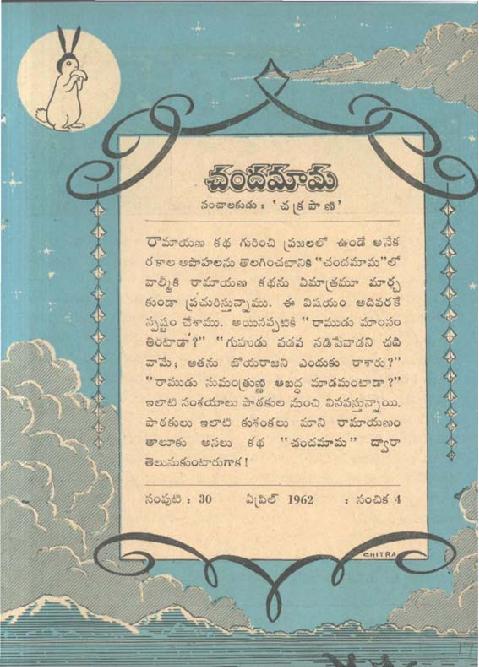 చందమామ
సంచాలకుడు : ' చక్రపాణి '
రామాయణ కథ గురించి ప్రజలలో ఉండే అనేక
రకాల అపోహలను తొలగించటానికి "చందమామ"లో
వాల్మీకి రామాయణ కథను ఏమాత్రమూ మార్చ
కుండా ప్రచురిస్తున్నాము. ఈ విషయం అదివరకే
స్పష్టం చేశాము. అయినప్పటికి "రాముడు మాంసం
తింటాడా?" "గుహుడు పడవ నడిపేవాడని చది
వామే; అతను బోయరాజని ఎందుకు రాశారు?"
"రాముడు సుమంత్రుణ్ణి అబద్ధ మాడమంటాడా?"
ఇలాటి సంశయాలు పాఠకుల నుంచి వినవస్తున్నాయి.
పాఠకులు ఇలాటి కుశంకలు మాని రామాయణం
తాలూకు అసలు కథ "చందమామ" ద్వారా
తెలుసుకుంటారుగాక!
సంపుటి : 30 ఏప్రిల్ 1962 : సంచిక 4
CHITRA